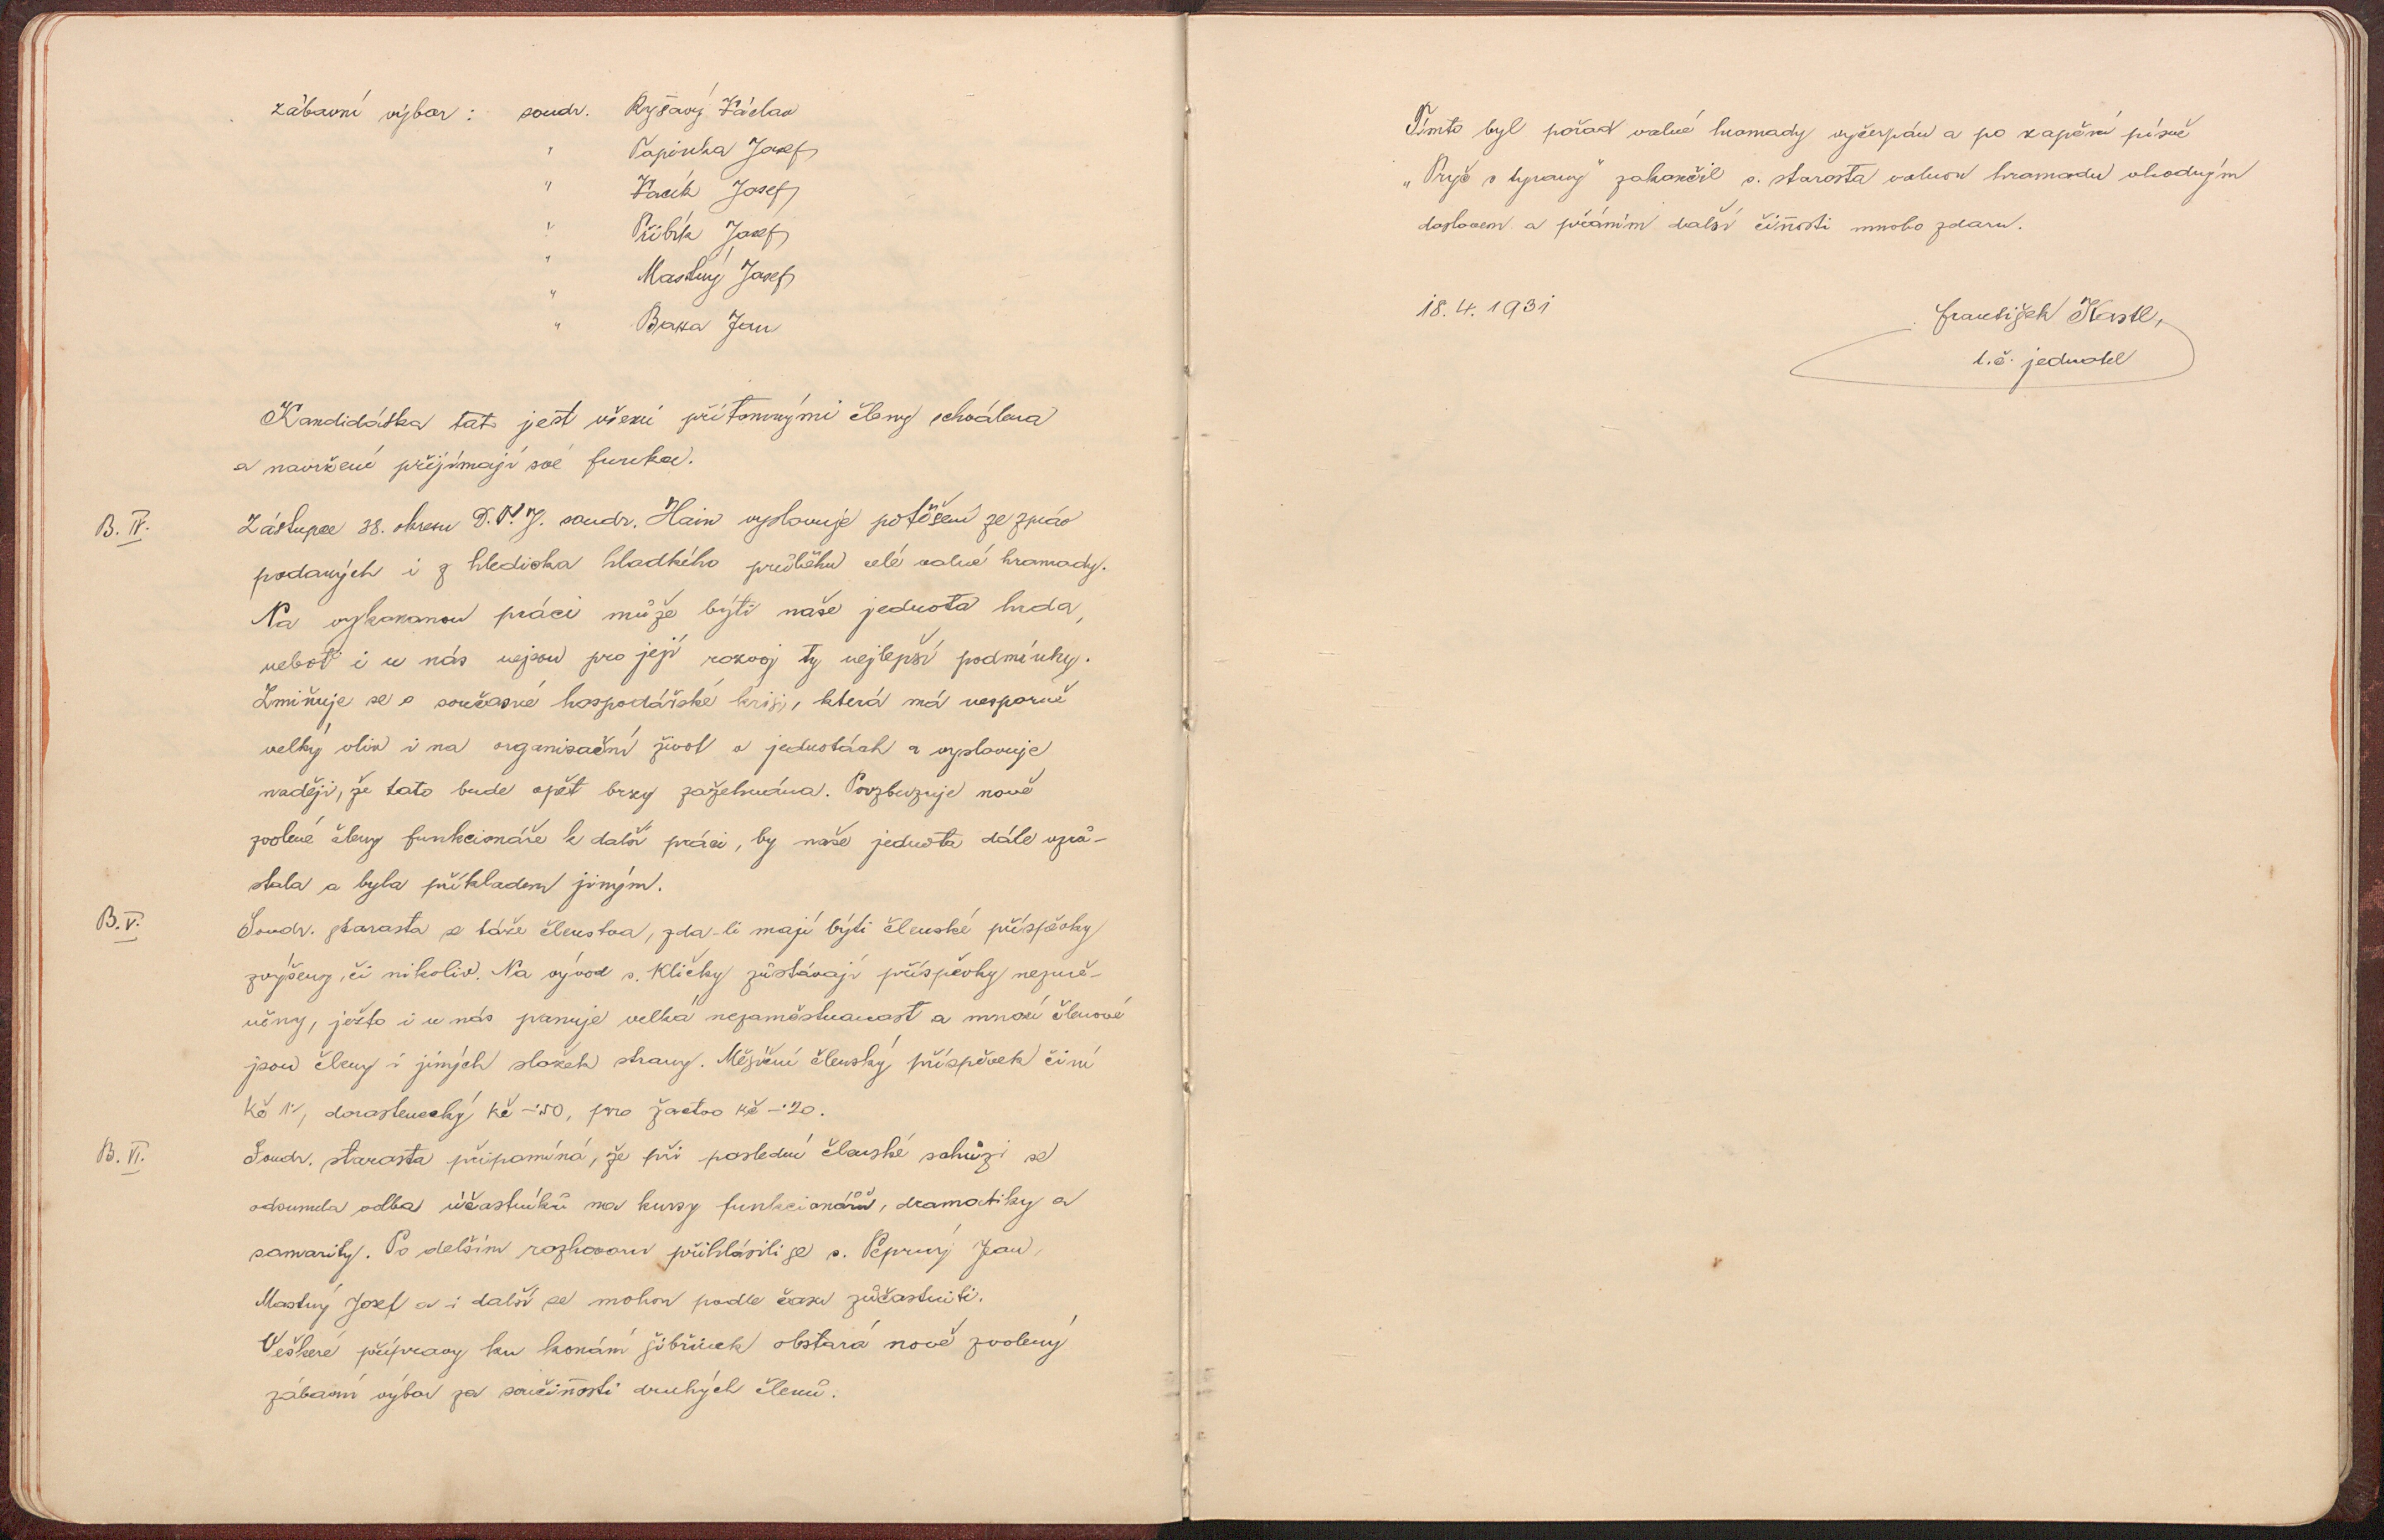 zábavní výbor: soudr. Ryšavý Václav
" Papinka Josef
" Vacík Josef
" Přibík Josef
" Mastný Josef
" Baxa Jan
Kandidátka tato jest všemi přítomnými členy schválena
a navržení přijímají své funkce.
B. IV. Zástupce 38. okresu D.T.J. soudr. Hain vyslovuje potěšení ze zpráv
podaných i z hlediska hladkého průběhu celé valné hromady.
Na vykonanou práci může býti naše jednota hrda,
neboť i u nás nejsou pro její rozvoj ty nejlepší podmínky.
Zmiňuje se o současné hospodářské krisi, která má nesporně
velký vliv i na organisační život v jednotách a vyslovuje
naději, že tato bude opět brzy zažehnána. Povzbuzuje nově
zvolené členy funkcionáře k další práci, by naše jednota dále vzrů-
stala a byla příkladem jiným.
B. V. Soudr. starosta se táže členstva, zda-li mají býti členské příspěvky
zvýšeny, či nikoliv. Na vývod s. Kličky zůstávají příspěvky nezmě-
něny, ježto i u nás panuje velká nezaměstnanost a mnozí členové
jsou členy i jiných složek strany. Měsíční členský příspěvek činí
Kč 1·-, dorostenecký Kč -·50, pro žactvo Kč -·20.
B. VI. Soudr. starosta připomíná, že při poslední členské schůzi se
odsunula volba účastníků na kursy funkcionářů, dramatiky a
samarity. Po delším rozhovoru přihlásili se s. Peprný Jan,
Mastný Josef a i další se mohou podle času zúčastniti.
Veškeré přípravy ku konání šibřinek obstará nově zvolený
zábavní výbor za součinnosti druhých členů.
Tímto byl pořad valné hromady vyčerpán a po zapění písně
„Pryč s tyrany" zakončil s. starosta valnou hromadu vhodným
doslovem a přáním další činnosti mnoho zdaru.
18. 4. 1931
František Kastl,
t. č. jednatel